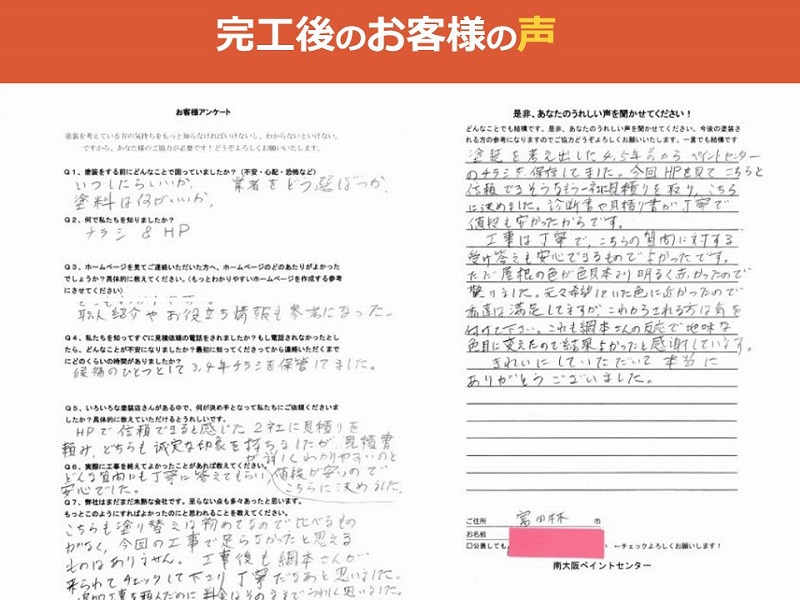 完工後のお客様の声
お客様アンケート
塗装を考えている方の気持ちをもっと知らなければいけないし、わからないといけない。
ですから、あなた様のご協力が必要です！どうぞよろしくお願いいたします。
Q１、塗装をする前にどんなことで困っていましたか？（不安・心配・恐怖など）
いつしたらいいか、業者をどう選ぼうか、
塗料は何がいいか、
Q２、何で私たちを知りましたか？
チラシ & HP
Q３、ホームページを見てご連絡いただいた方へ、ホームページのどのあたりがよかった
でしょうか？具体的に教えてください。（もっとわかりやすいホームページを作成する参考
にさせてください）
職人紹介やお役立ち情報も参考になった。
Q４、私たちを知ってすぐに見積依頼の電話をされましたか？もし電話されなかったとし
たら、どんなことが不安になりましたか？最初に知ってくださってから連絡いただくまで
にどのくらいの時間がありましたか？
候補のひとつとして3,4年チラシを保管してました。
Q５、いろいろな塗装店さんがある中で、何が決め手となって私たちにご依頼くださいま
したか？具体的に教えていただけるとうれしいです。
HPで信頼できると感じた2社に見積りを
頼み、どちらも誠実な印象を持ちましたが、見積書
が詳しくわかりやすいのと
値段が安いので
こちらに決めました。
Q６、実際に工事を終えてよかったことがあれば教えてください。
どんな質問にも丁寧に答えてもらい、
安心でした。
Q７、弊社はまだまだ未熟な会社です。至らない点も多々あったと思います。
もっとこのようにすればよかったのにと思われることを教えてください。
こちらも塗り替えは初めてなので比べるもの
がなく、今回の工事で足らなかったと思える
ものはありません。工事後も綱本さんが
来られてチェックして下さり丁寧だなあと思いました。
追加工事を頼んだのに料金はそのままでうれしく思いました。
是非、あなたのうれしい声を聞かせてください！
どんなことでも結構です。是非、あなたのうれしい声を聞かせてください。今後の塗装さ
れる方の参考になりますのでご協力どうぞよろしくお願いします。一言でも結構です
塗装を考え出した4.5年前からペイントセンター
のチラシを保存してました。今回HPを見てこちらと
信頼できそうなもう一社に見積りを取り、こちら
に決めました。診断書や見積り書が丁寧で
値段も安かったからです。
工事は丁寧で、こちらの質問に対する
受け答えも安心できるものでよかったです。
ただ屋根の色が色見本より明るく赤かったので
驚りました。元々希望していた色に近かったので
私達は満足してますが、これからされる方は気を
付けて下さい。これも綱本さんの反応で地味な
色目に変えたので結果よかったと感謝しています。
きれいにしていただいて本当に
ありがとうございました。
ご住所 富田林 市
お名前
□公表しても、 ←チェックよろしくお願いします！
南大阪ペイントセンター